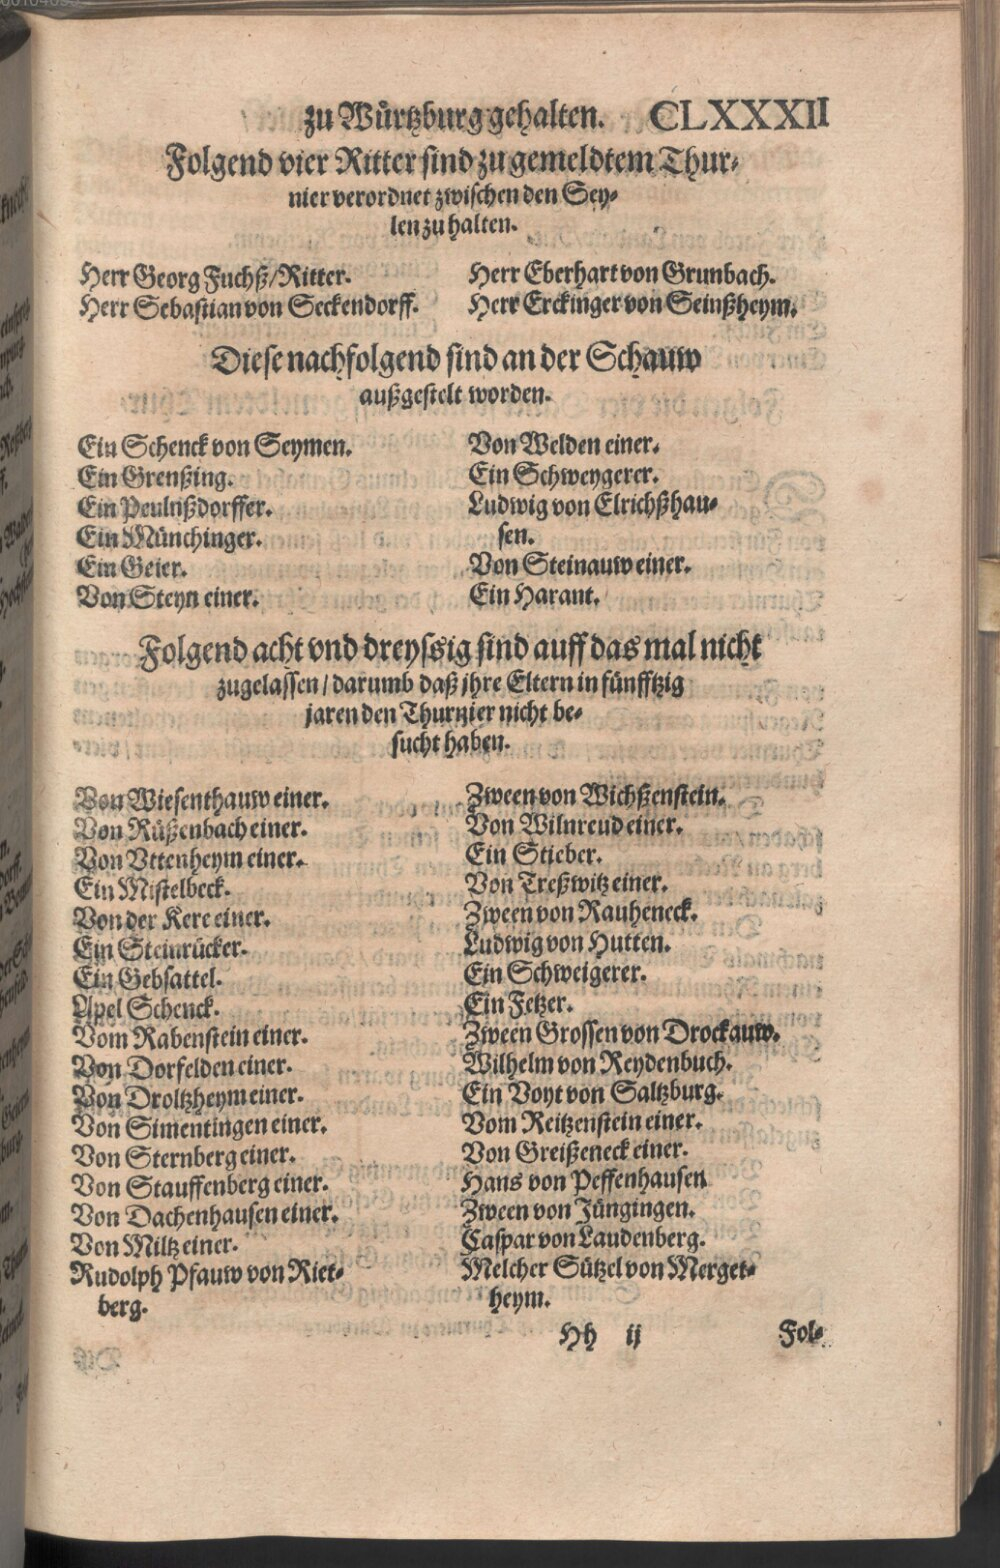 zu Wuͤrtzburg gehalten. CLXXXII
Folgend vier Ritter sind zu gemeldtem Thur⸗
nier verordnet zwischen den Sey⸗
len zu halten.
Herr Georg Fuchß/Ritter.
Herr Sebastian von Seckendorff.
Herr Eberhart von Grunbach.
Herr Erckinger von Seinßheym.
Diese nachfolgend sind an der Schauw
außgestelt worden.
Ein Schenck von Seymen.
Ein Grenßing.
Ein Peulnßdorffer.
Ein Münchinger.
Ein Geier.
Von Steyn einer.
Von Welden einer.
Ein Schweygerer.
Ludwig von Elrichßhau⸗
sen.
Von Steinauw einer.
Ein Harant.
Folgend acht vnd dreyssig sind auff das mal nicht
zugelassen / darumb daß jhre Eltern in fünfftzig
jaren den Thurnier nicht be⸗
sucht haben.
Von Wiesenthauw einer.
Von Rüßenbach einer.
Von Vttenheym einer.
Ein Mistelbeck.
Von der Kere einer.
Ein Steinrücker.
Ein Gebsattel.
Apel Schenck.
Vom Rabenstein einer.
Von Dorfelden einer.
Von Droltzheym einer.
Von Simentingen einer.
Von Sternberg einer.
Von Stauffenberg einer.
Von Dachenhausen einer.
Von Miltz einer.
Rudolph Pfauw von Riet⸗
berg.
Zween von Wichßenstein.
Von Wilnreud einer.
Ein Stieber.
Von Treßwitz einer.
Zween von Rauheneck.
Ludwig von Hutten.
Ein Schweigerer.
Ein Fetzer.
Zween Grossen von Drockauw.
Wilhelm von Reydenbuch.
Ein Voyt von Saltzburg.
Vom Reitzenstein einer.
Von Greißeneck einer.
Hans von Peffenhausen
Zween von Jüngingen.
Caspar von Laudenberg.
Melcher Sützel von Merget⸗
heym.
Hh ij Fol⸗